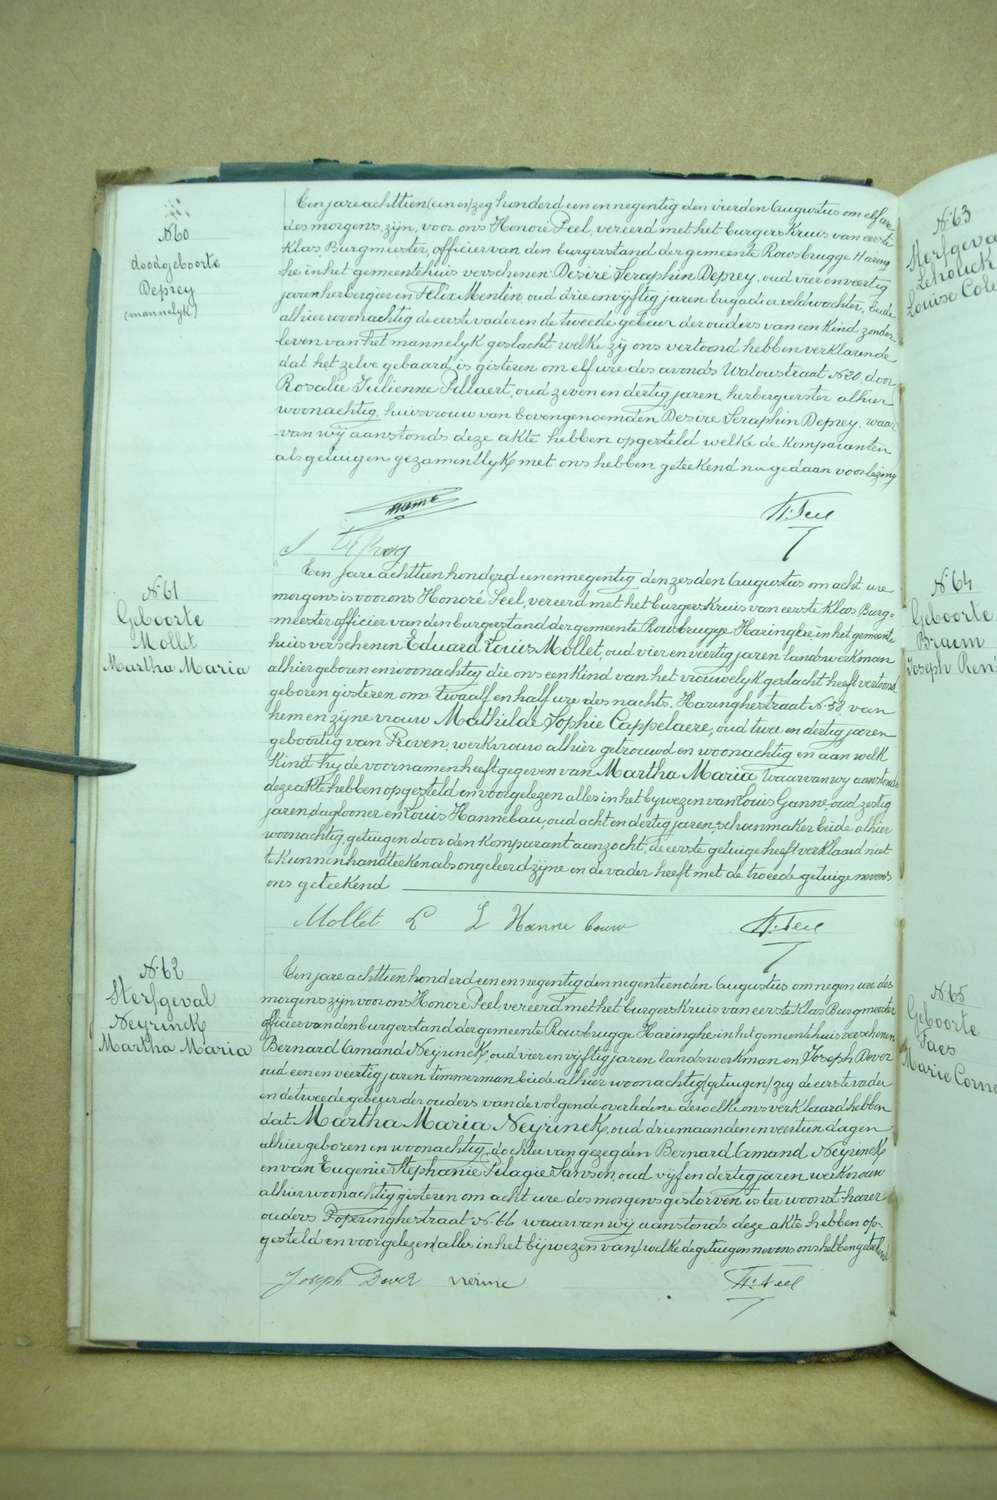 N° 60
doodgeboorte
Deprey
(mannelyk)
Ten jare achttien (een en) zeg honderd een en negentig den vierden Augustus om elf ure
des morgens, zijn, voor ons Honoré Feel, vereerd met het burgerskruis van eerste
klas, Burgmeester, officier van den burgerstand der gemeente Rousbrugge Haring
he in het gemeentehuis verschenen Desiré Seraphin Deprey, oud vier en veertig
jaren herbergier en Felix Mentin oud drie en vijftig jaren brigadeveldwachter, beide
alhier woonachtig de eerste vader en de tweede gebuur der ouders van een kind zonder
leven van het mannelyk geslacht welke zy ons vertoond hebben verklarende
dat het zelve gebaard is gisteren om elf ure des avonds Watoustraat N° 20, door
Rosalie Julienne Pillaert, oud zeven en dertig jaren, herbergierster alhier
woonachtig, huisvrouw van bovengenoemden Desiré Seraphin Deprey, waar
van wij aanstonds deze akte hebben opgesteld welke de komparanten
als getuigen gezamentlyk met ons hebben geteekend na gedaan voorlezing
H. Feel
N° 61
Geboorte
Mollet
Martha Maria
Ten jare achttien honderd een en negentig den zesden Augustus om acht ure
morgens is voor ons Honoré Feel, vereerd met het burgerskruis van eerste klas Burg-
meester officier van den burgerstand der gemeente Rousbrugge Haringhe in het gemeente
huis verschenen Eduard Louis Mollet, oud vier en veertig jaren landswerkman
alhier geboren en woonachtig die ons een kind van het vrouwelyk geslacht heeft vertoond
geboren gisteren om twaalf en half ure des nachts, Haringhestraat N° 58 van
hem en zijne vrouw Mathilde Sophie Cappelaere, oud twee en dertig jaren
geboortig van Proven, werkvrouw alhier getrouwd en woonachtig en aan welk
kind hy de voornamen heeft gegeven van Martha Maria Waarvan wy aanstonds
deze akte hebben opgesteld en voorgelezen alles in het bywezen van Louis Ganne, oud zestig
jaren, daglooner en Louis Hannebau, oud acht en dertig jaren, schoenmaker beide alhier
woonachtig, getuigen door den komparant aanzocht, de eerste getuige heeft verklaard niet
te kunnen handteeken als ongeleerd zijne en de vader heeft met de tweede getuige nevens
ons geteekend
Mollet L L Hanne bouw H. Feel
N° 62
Sterfgeval
Neyrinck
Martha Maria
Ten jare achttien honderd een en negentig den negentienden Augustus om negen ure des
morgens zijn voor ons Honoré Feel, vereerd met het burgerskruis van eerste klas Burgmeester
officier van den burgerstand der gemeente Rousbrugge Haringhe in het gemeentehuis verschenen
Bernard Amand Neyrinck, oud vier en vyftig jaren landswerkman en Joseph Dever
oud een en veertig jaren timmerman beide alhier woonachtig (getuigen) zeg de eerste vader
en de tweede gebuur der ouders van de volgende overledene dewelke ons verklaard hebben
dat Martha Maria Neyrinck, oud drie maanden en veertien dagen
alhier geboren en woonachtig, dochter van gezegden Bernard Amand Neyrinck
en van Eugenie Stephanie Pelagie Sansen, oud vyf en dertig jaren werkvrouw
alhier woonachtig gisteren om acht ure des morgens gestorven is ter woonst harer
ouders Poperinghestraat N° 66 waarvan wy aanstonds deze akte hebben op-
gesteld en voorgelezen (alles in het bijwezen van) welke de getuigen nevens ons hebben geteekend
Joseph Dever H. Feel
N° 63
Sterfgeva
Lehouck
Louise Cole
N° 64
Geboorte
Braem
Joseph Rene
N° 65
Geboorte
Saes
Marie Corne